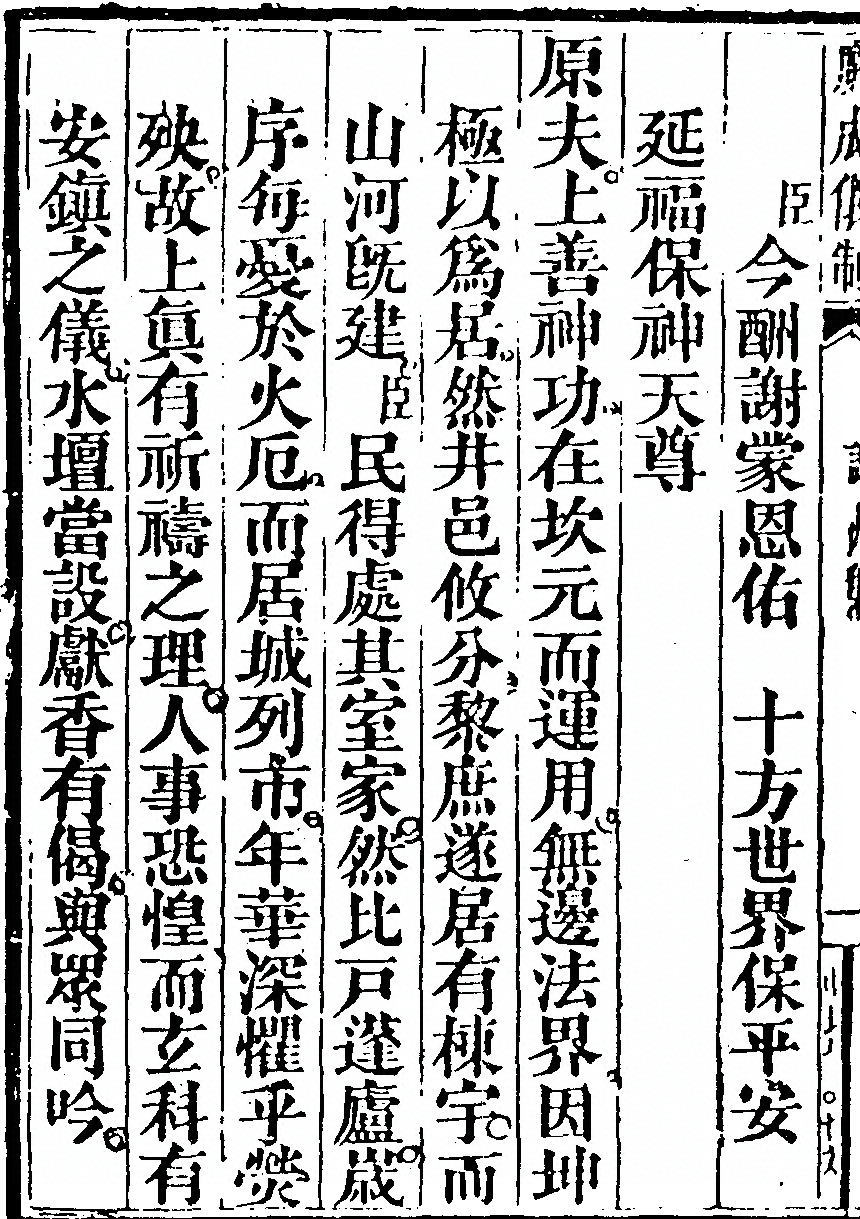 臣今酬謝蒙恩佑　十方世界保平安
延福保神天尊
原夫上善神功在坎元而運用無邊法界因坤
極以為居然井邑攸分黎庶遂居有棟宇而
山河既建臣民得處其室家然比戸蓬廬歲
序每憂於火厄而居城列市年華深懼乎熒
殃故上眞有祈禱之理人事恐惶而立科有
安鎭之儀水壇當設獻香有偈與眾同吟